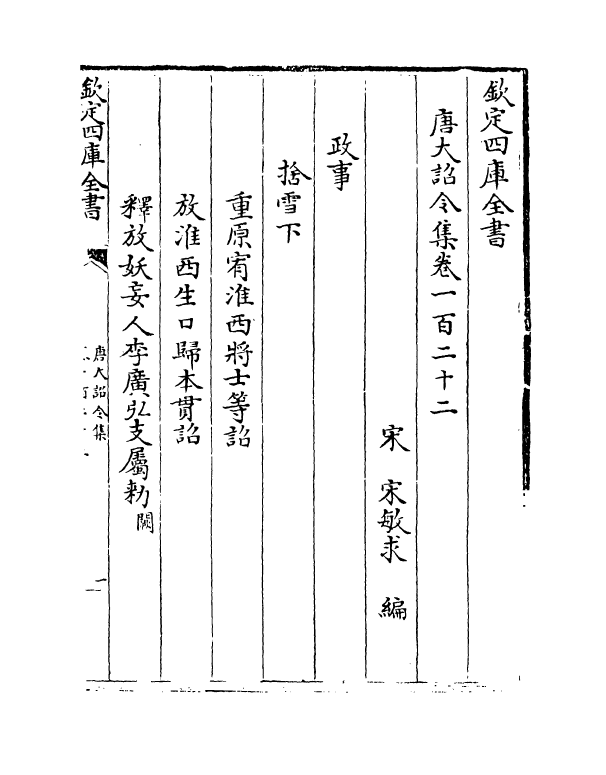 欽定四庫全書
唐大詔令集卷一百二十二
宋 宋敏求 編
政事
捨雪下
重原宥淮西將士等詔
放淮西生口歸本貫詔
釋放妖妄人李廣弘支屬勅闕
欽定四庫全書
唐大詔令集
一